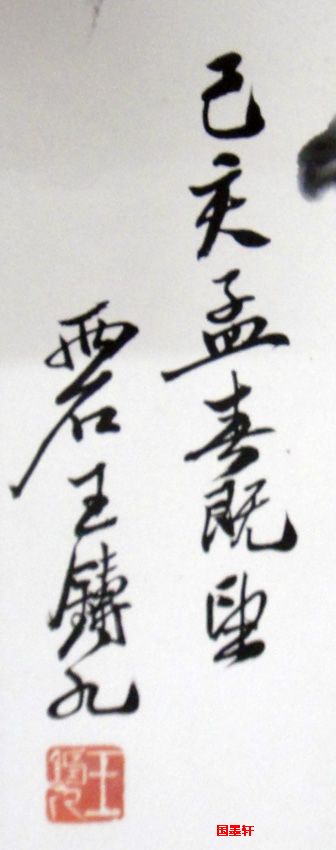 己亥孟春既望
两石王铸九
王铸九
国墨轩